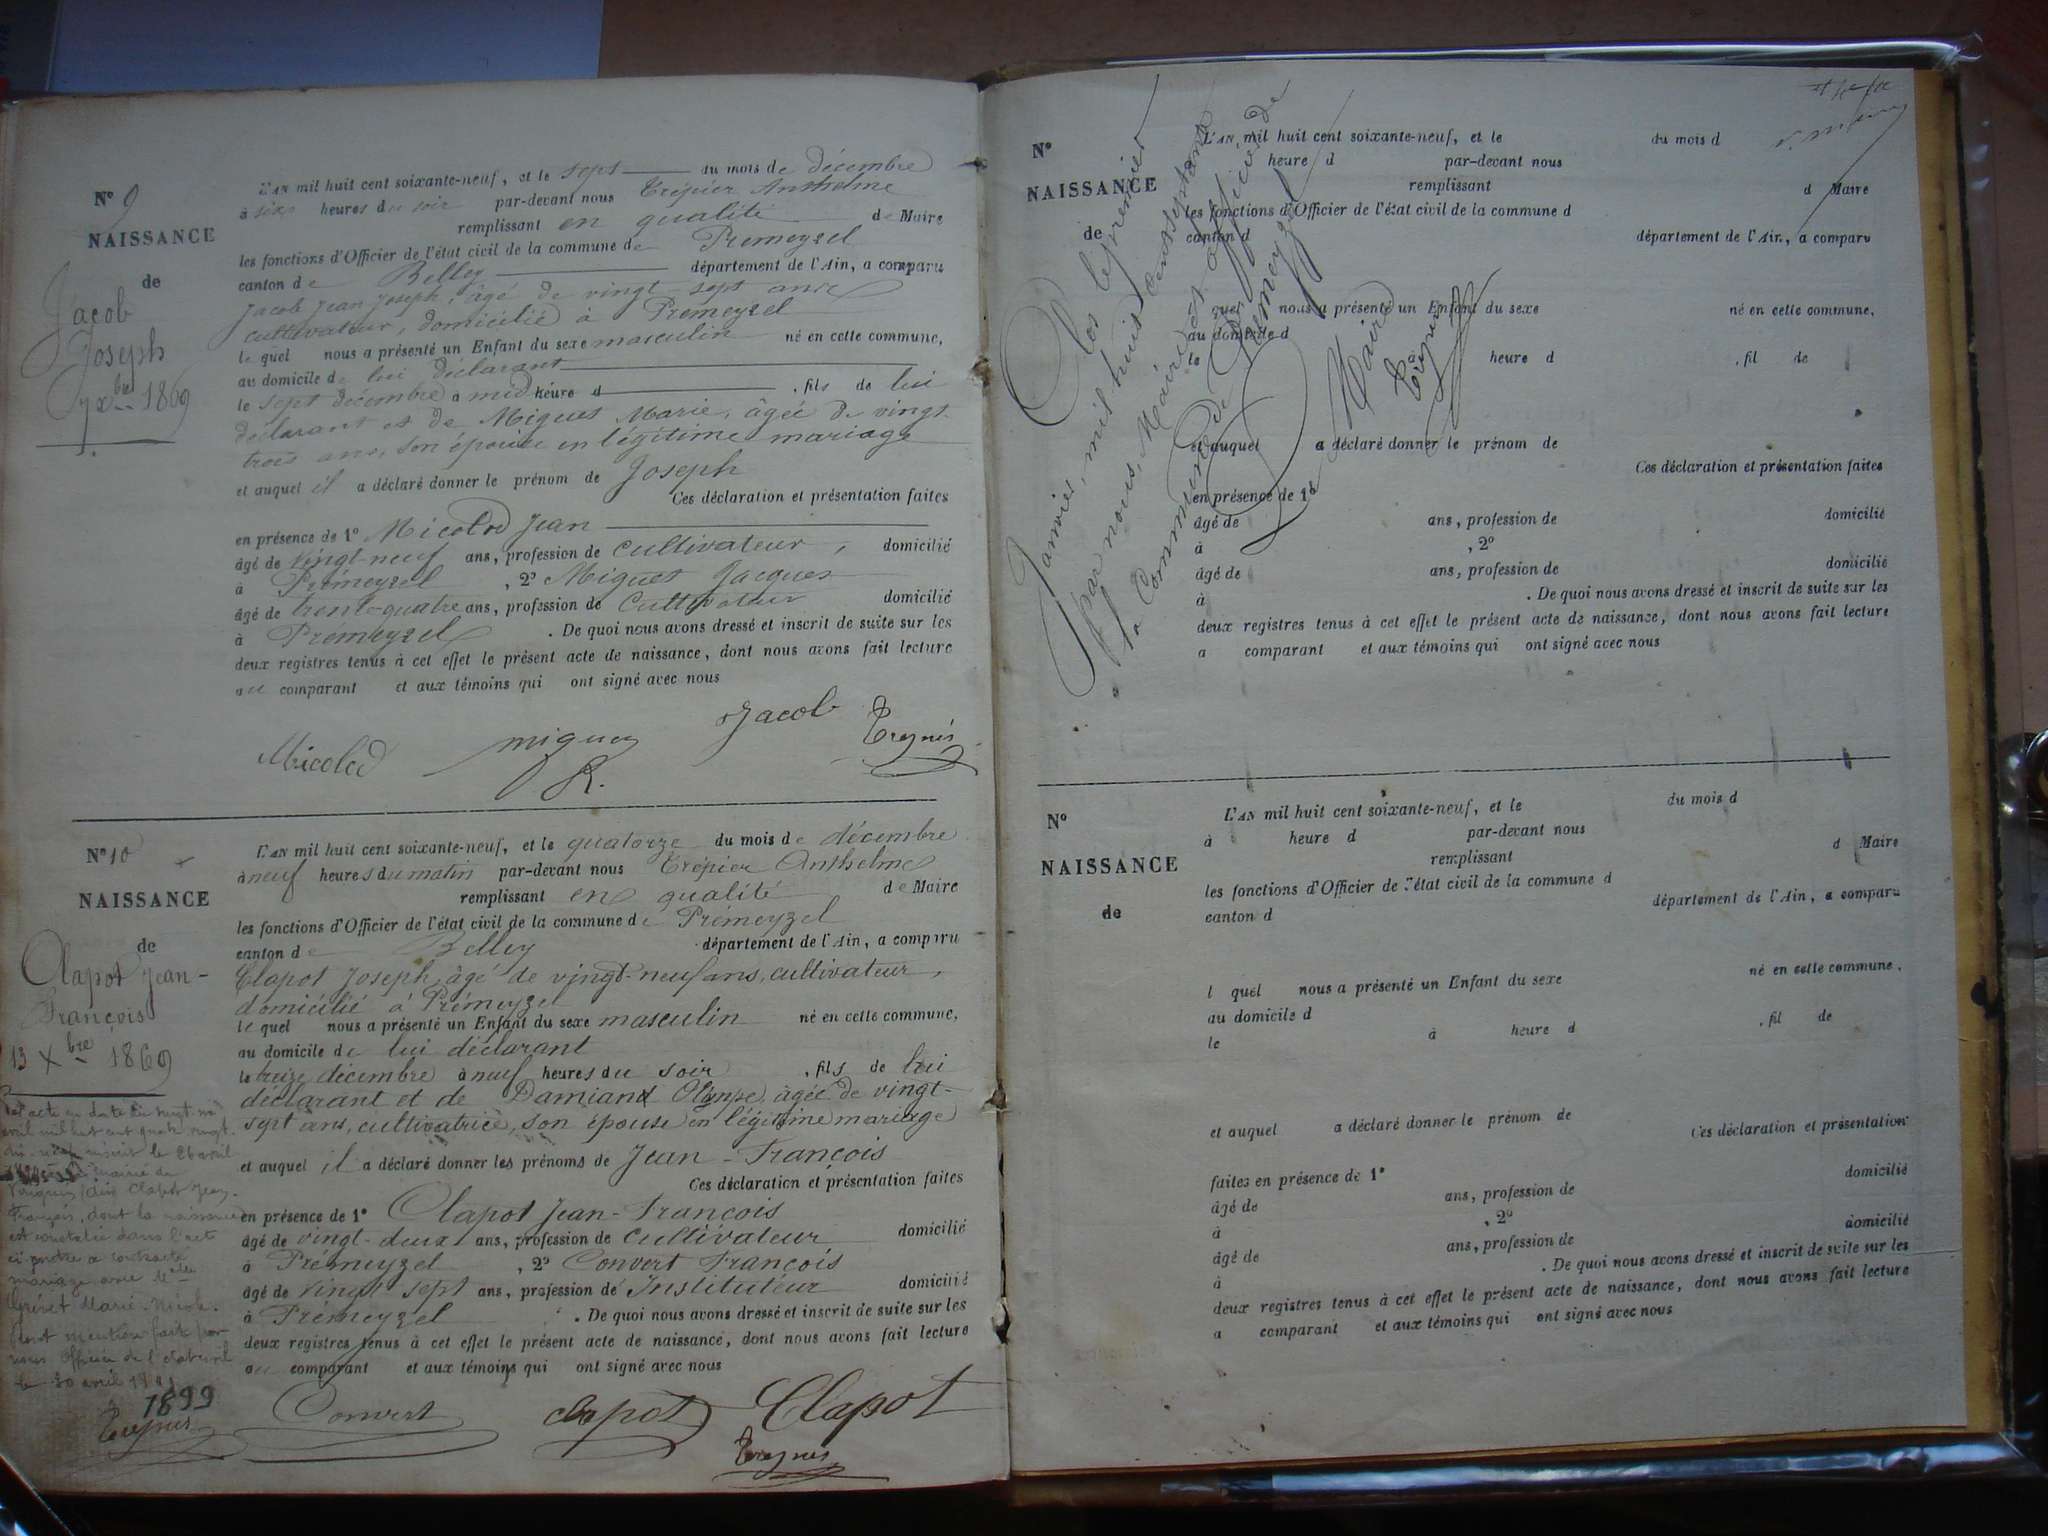 N° 9
NAISSANCE
de
Jacob
Joseph
7 Xbre 1869
L'AN mil huit cent soixante-neuf, et le sept du mois de décembre
à six heures du soir par-devant nous Trépier Anthelme
remplissant en qualité de Maire
les fonctions d'Officier de l'état civil de la commune de Prémeyzel
canton de Belley département de l'Ain, a comparu
Jacob Jean Joseph, âgé de vingt-sept ans
cultivateur, domicilié à Prémeyzel
le quel nous a présenté un Enfant du sexe masculin né en cette commune,
au domicile de lui déclarant
le sept décembre à midi heure d , fils de lui
déclarant et de Miguet Marie, âgée de vingt
trois ans, son épouse en légitime mariage
et auquel il a déclaré donner le prénom de Joseph
Ces déclaration et présentation faites
en présence de 1° Micolod Jean
âgé de vingt-neuf ans, profession de cultivateur, domicilié
à Prémeyzel , 2° Miguet Jacques
âgé de trente-quatre ans, profession de Cultivateur domicilié
à Prémeyzel . De quoi nous avons dressé et inscrit de suite sur les
deux registres tenus à cet effet le présent acte de naissance, dont nous avons fait lecture
au comparant et aux témoins qui ont signé avec nous
Jacob
Micolod miguet
N° 10
NAISSANCE
de
Clapot Jean-
François
13 Xbre 1869
L'AN mil huit cent soixante-neuf, et le quatorze du mois de décembre
à neuf heures du matin par-devant nous Trépier Anthelme
remplissant en qualité de Maire
les fonctions d'Officier de l'état civil de la commune de Prémeyzel
canton de Belley département de l'Ain, a comparu
Clapot Joseph, âgé de vingt-neuf ans, cultivateur,
domicilié à Prémeyzel
le quel nous a présenté un Enfant du sexe masculin né en cette commune,
au domicile de lui déclarant
le treize décembre à neuf heures du soir , fils de lui
déclarant et de Damiand âgée de vingt-
sept ans, cultivatrice, son épouse en légitime mariage
et auquel il a déclaré donner les prénoms de Jean-François
Ces déclaration et présentation faites
en présence de 1° Clapot Jean-François
âgé de vingt-deux ans, profession de cultivateur domicilié
à Prémeyzel , 2° Convert François
âgé de vingt sept ans, profession de Instituteur domicilié
à Prémeyzel . De quoi nous avons dressé et inscrit de suite sur les
deux registres tenus à cet effet le présent acte de naissance, dont nous avons fait lecture
au comparant et aux témoins qui ont signé avec nous
Convert clapot Clapot
avril mil huit cent quatre vingt
inscrit le
mairie de
Clapot Jean-
François, dont la naissance
est constatée dans l'acte
ci-contre a contracté
mariage avec Melle
Marie
dont mention faite par
nous Officier de l'état civil
le 30 avril
1899
N°
NAISSANCE
de
L'AN mil huit cent soixante-neuf, et le du mois d
heure d par-devant nous
remplissant d Maire
les fonctions d'Officier de l'état civil de la commune d
canton d département de l'Ain, a comparu
quel nous a présenté un Enfant du sexe né en cette commune,
au domicile d
le à heure d , fil de
et auquel a déclaré donner le prénom de
Ces déclaration et présentation faites
en présence de 1°
âgé de ans, profession de domicilié
à , 2°
âgé de ans, profession de domicilié
à . De quoi nous avons dressé et inscrit de suite sur les
deux registres tenus à cet effet le présent acte de naissance, dont nous avons fait lecture
a comparant et aux témoins qui ont signé avec nous
Clos le premier
Janvier, mil huit cent septante
Par nous, Maire et officier de
la Commune de Prémeyzel
Le Maire
N°
NAISSANCE
de
L'AN mil huit cent soixante-neuf, et le du mois d
à heure d par-devant nous
remplissant d Maire
les fonctions d'Officier de l'état civil de la commune d
canton d département de l'Ain, a comparu
l quel nous a présenté un Enfant du sexe né en cette commune,
au domicile d
le à heure d , fil de
et auquel a déclaré donner le prénom de
Ces déclaration et présentation
faites en présence de 1°
âgé de ans, profession de domicilié
à , 2°
âgé de ans, profession de domicilié
à . De quoi nous avons dressé et inscrit de suite sur les
deux registres tenus à cet effet le présent acte de naissance, dont nous avons fait lecture
a comparant et aux témoins qui ont signé avec nous